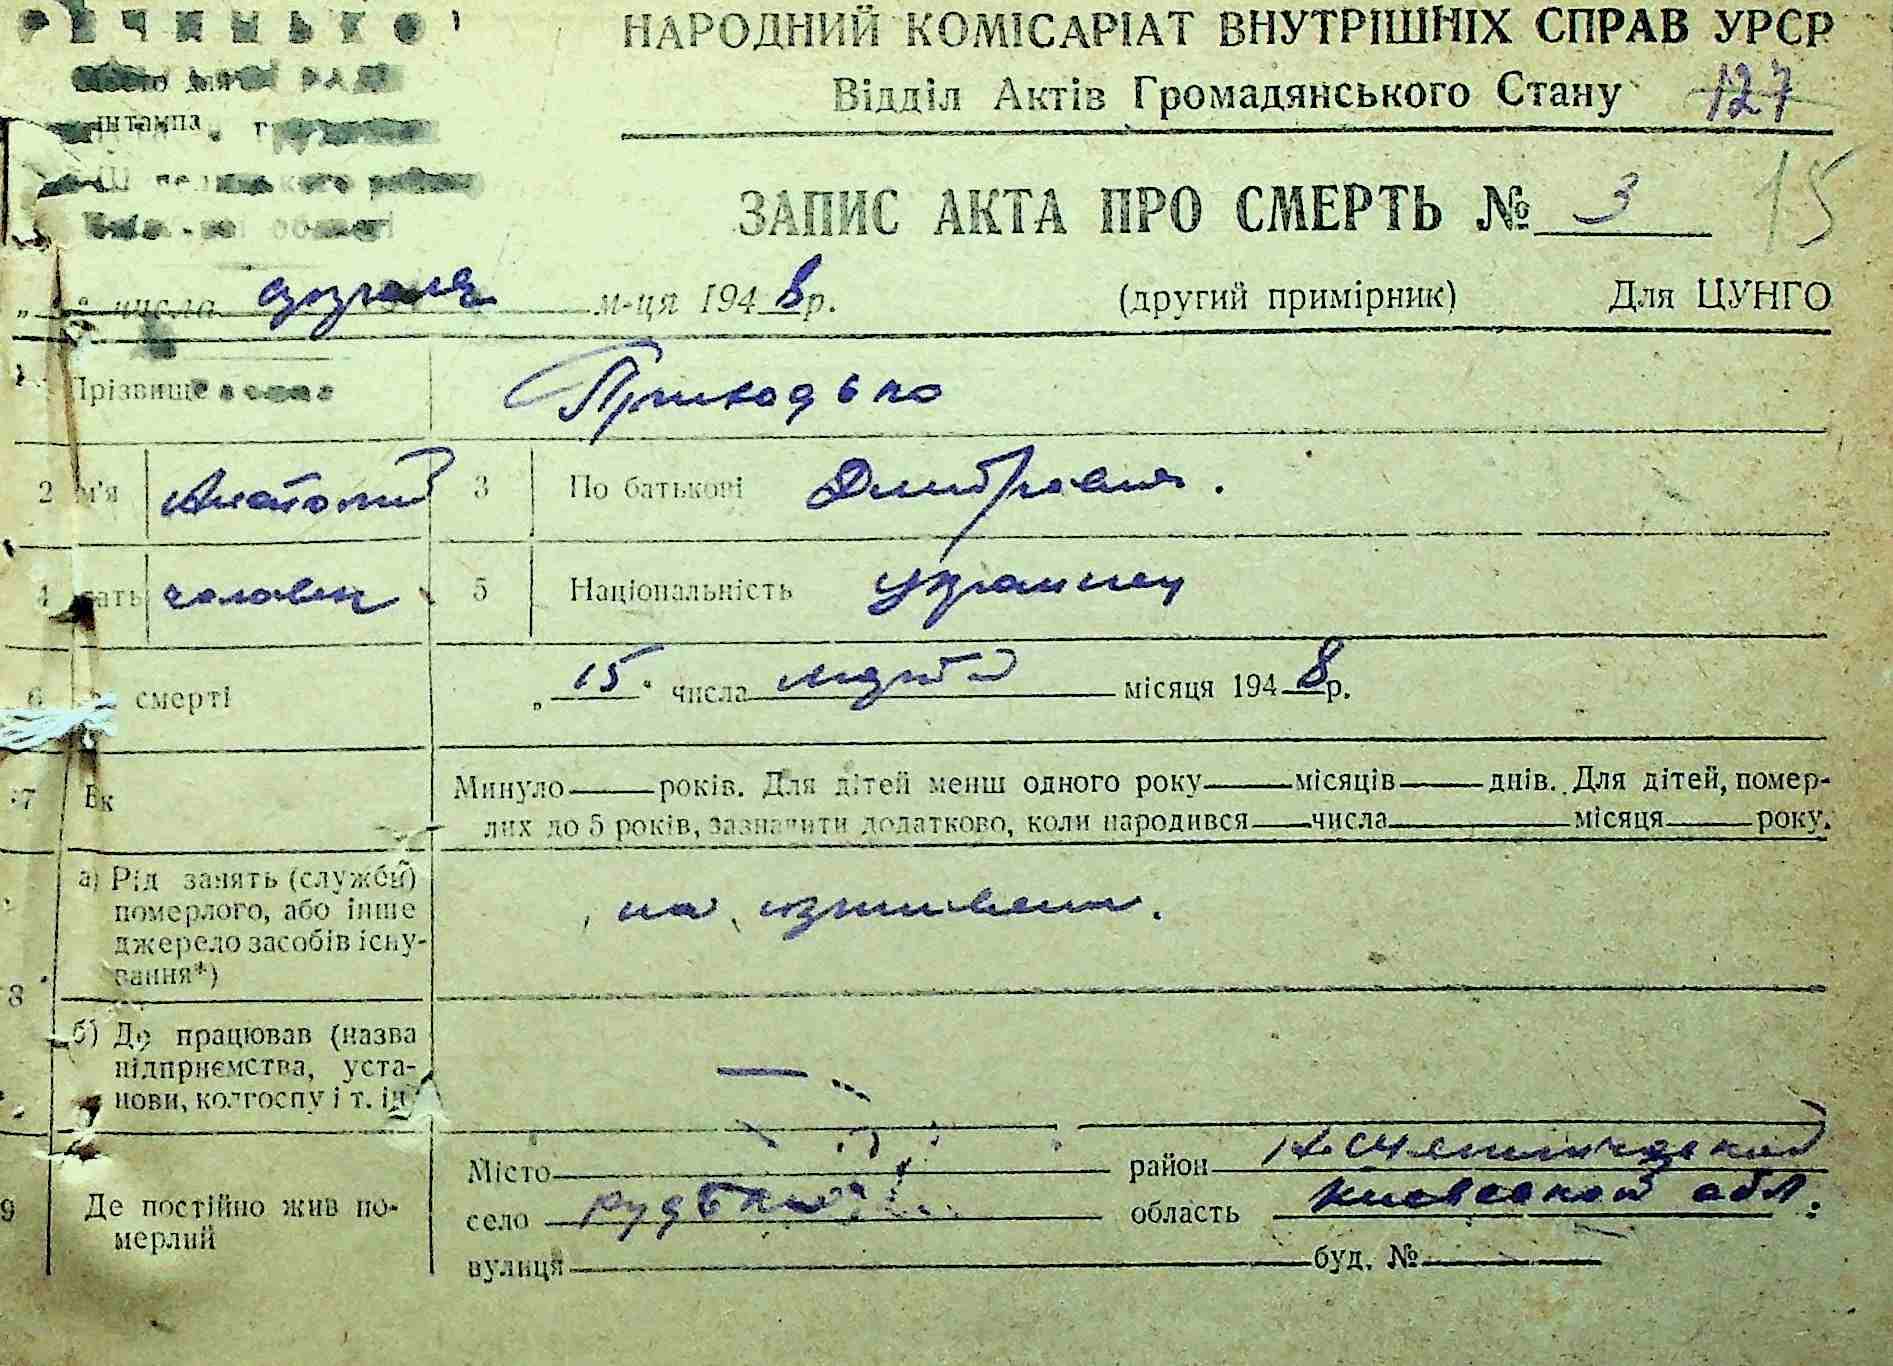 НАРОДНИЙ КОМІСАРІАТ ВНУТРІШНІХ СПРАВ УРСР
Відділ Актів Громадянського Стану 127
штампа
області
ЗАПИС АКТА ПРО СМЕРТЬ № 3 15
числа м-ця 1948 р. (другий примірник) Для ЦУНГО
Прізвище Приходько
2 м'я Анатолий 3 По батькові
4 тать человек 5 Національність украинец
6 смерті „15" числа марта місяця 1948 р.
7 Вк Минуло років. Для дітей менш одного року місяців днів. Для дітей, помер-
лих до 5 років, зазначити додатково, коли народився числа місяця року.
8 а) Рід занять (служби) померлого, або інше джерело засобів існу-вання*) на иждивении.
б) Де працював (назва підприємства, уста-нови, колгоспу і т. ін —
9 Де постійно жив по-мерлий
Місто район
село область Киевской обл.
вулиця буд. №